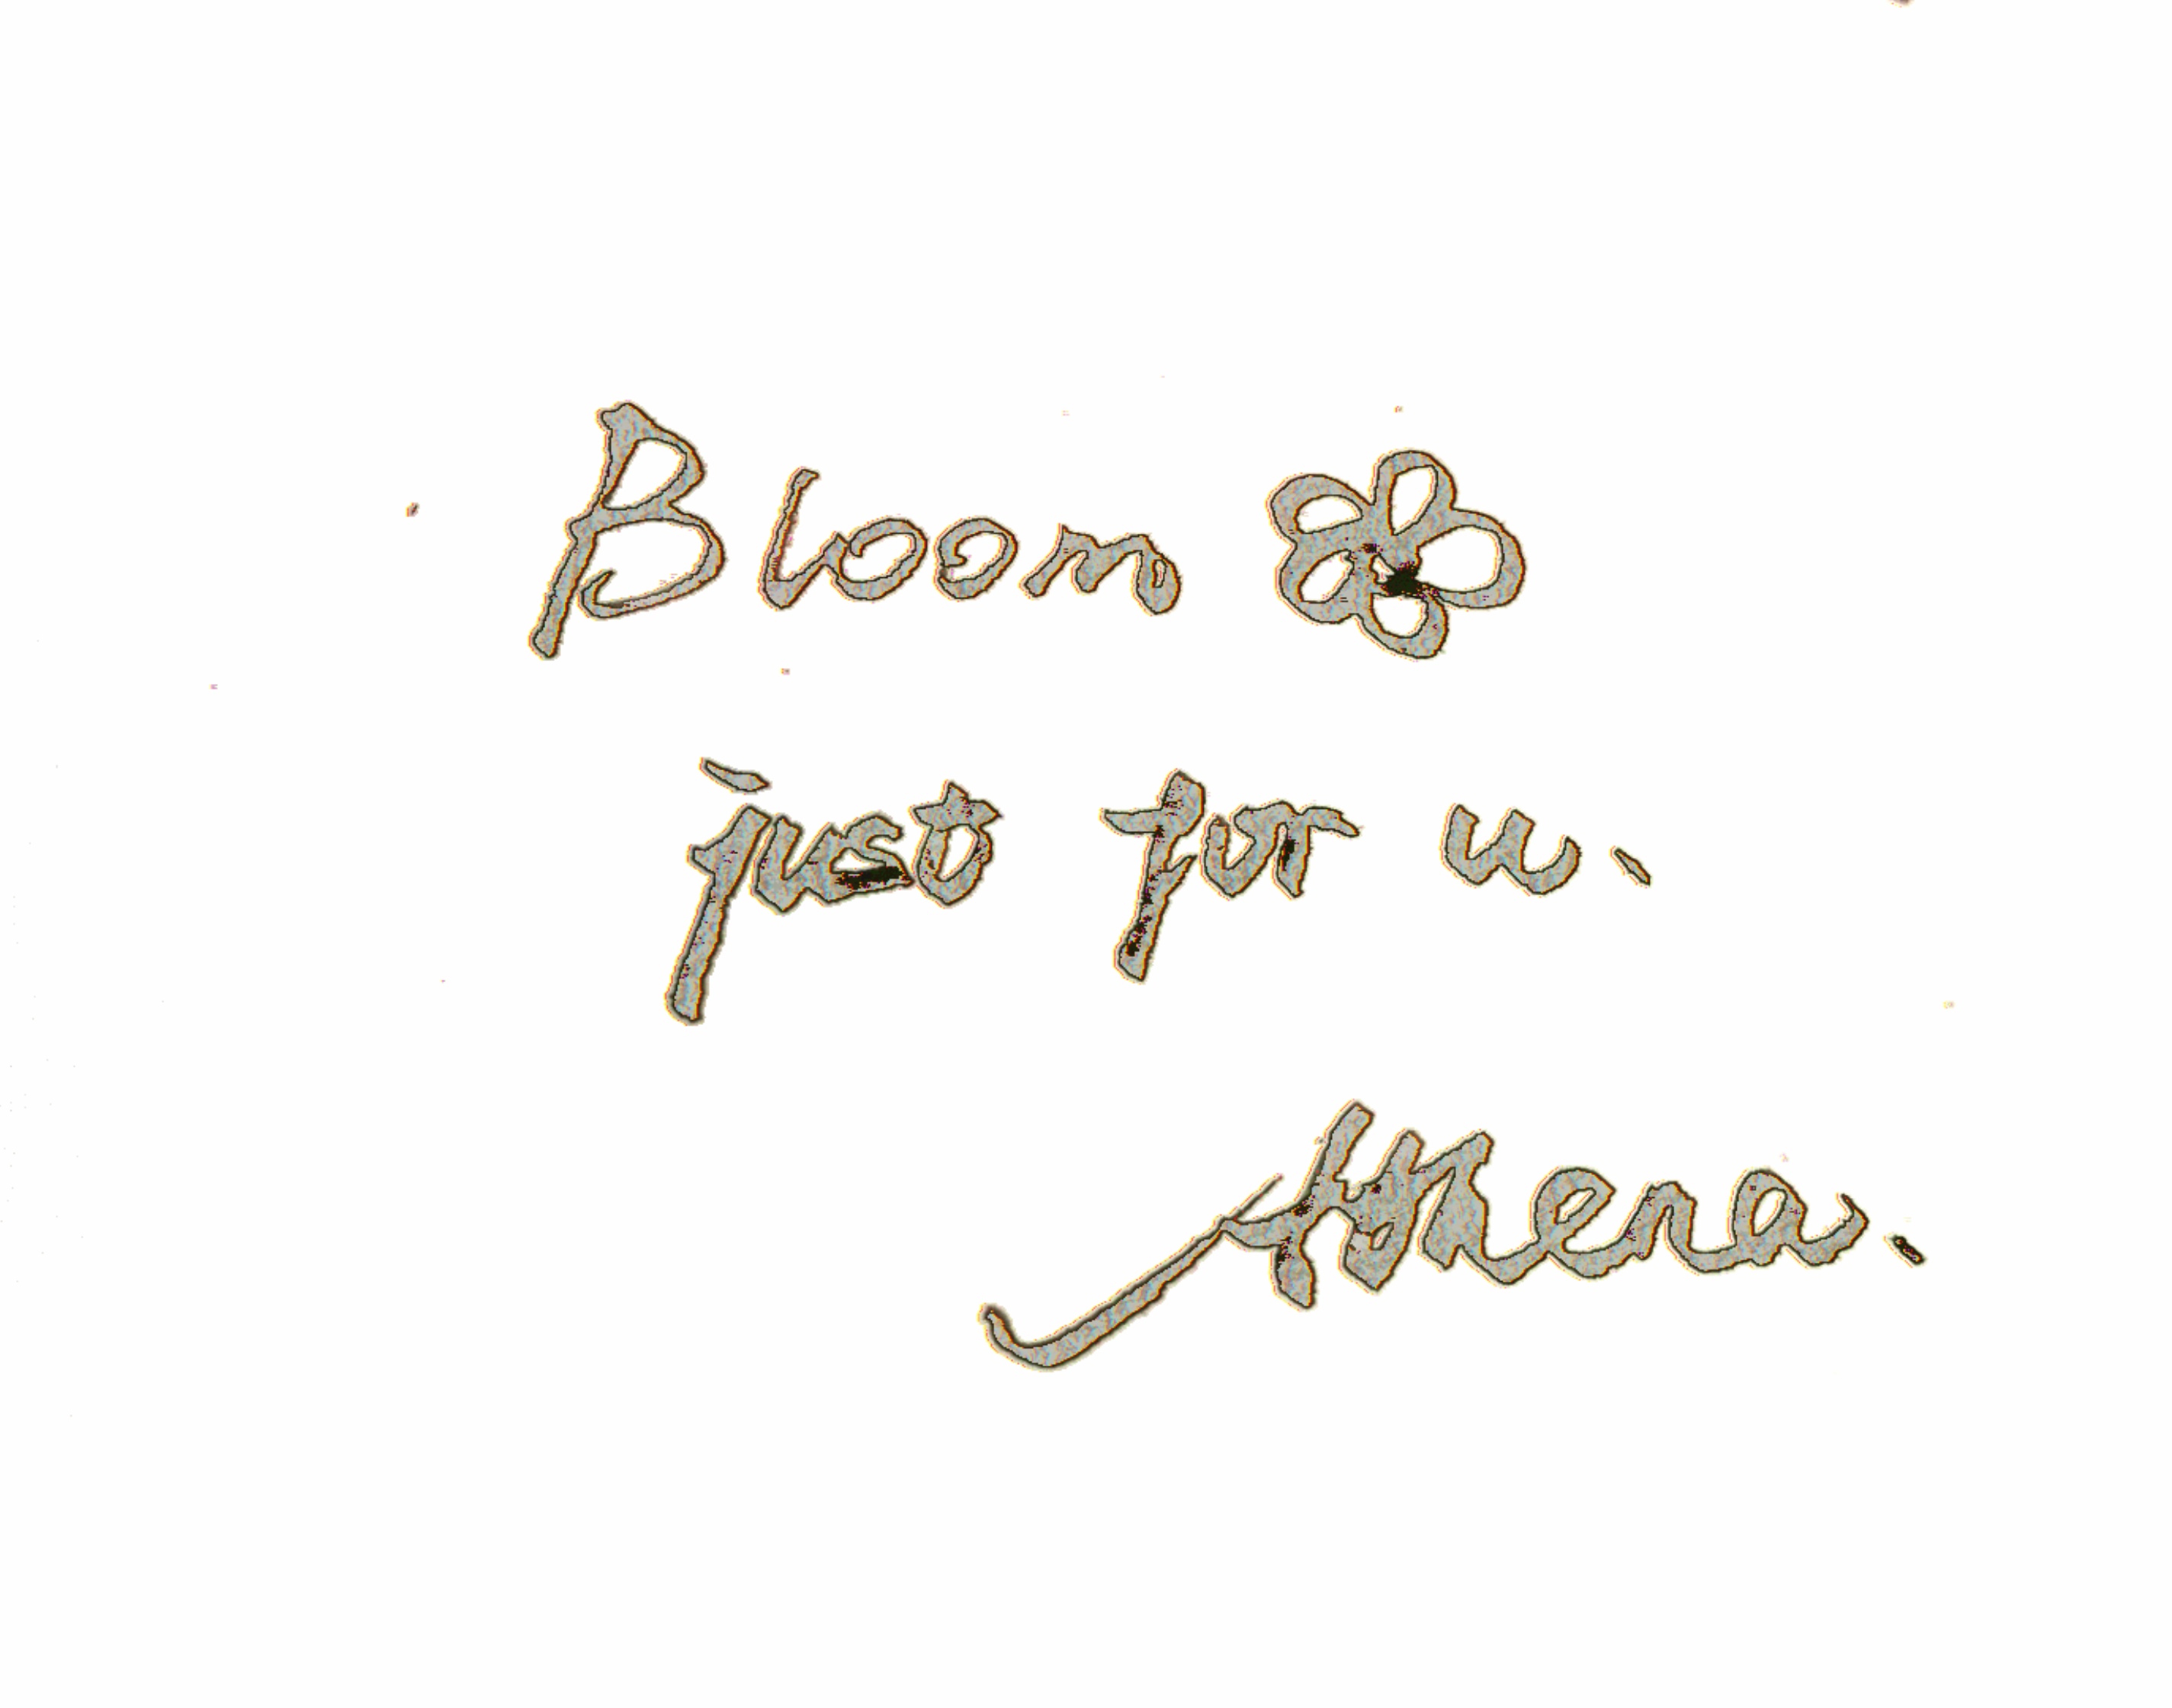 Bloom
just for u.
Athena.